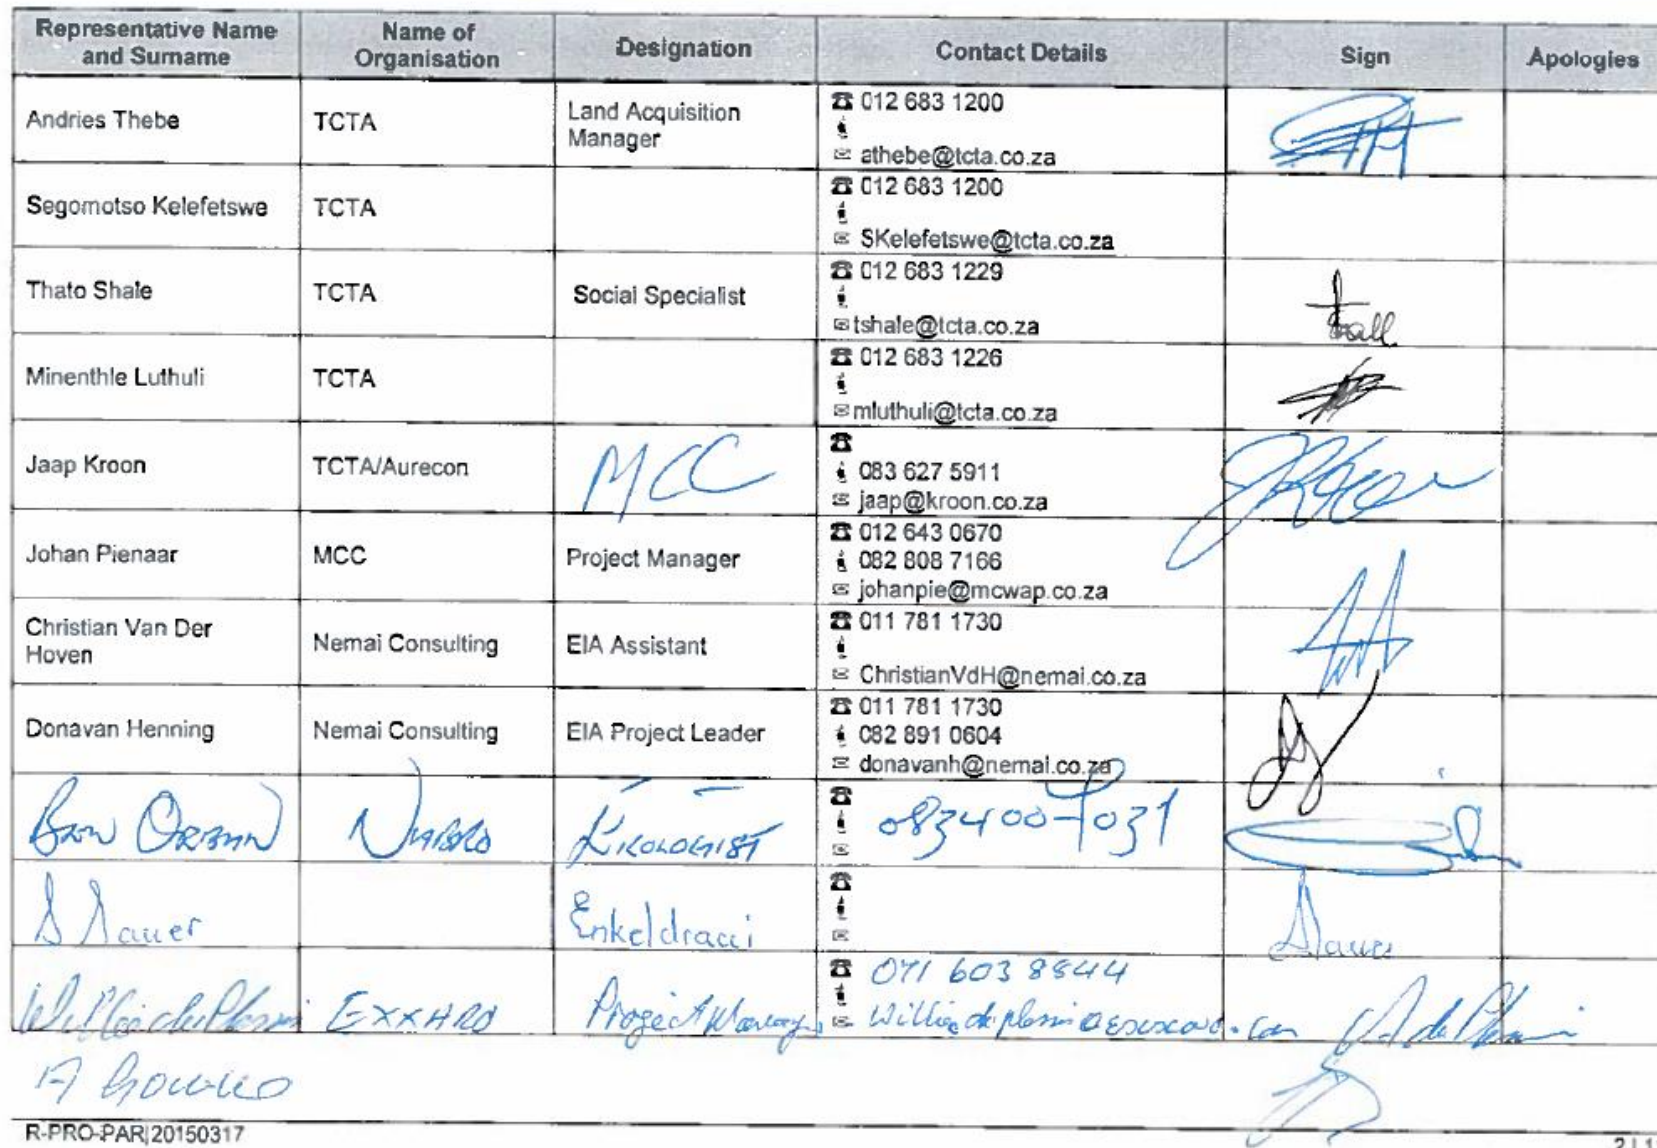 Representative Name and Surname Name of Organisation Designation Contact Details Sign Apologies
Andries Thebe TCTA Land Acquisition Manager 012 683 1200
athebe@tcta.co.za
Segomotso Kelefetswe TCTA 012 683 1200
SKelefetswe@tcta.co.za
Thato Shale TCTA Social Specialist 012 683 1229
tshale@tcta.co.za
Minenthle Luthuli TCTA 012 683 1226
mluthuli@tcta.co.za
Jaap Kroon TCTA/Aurecon MCC
083 627 5911
jaap@kroon.co.za
Johan Pienaar MCC Project Manager 012 643 0670
082 808 7166
johanpie@mcwap.co.za
Christian Van Der Hoven Nemai Consulting EIA Assistant 011 781 1730
ChristianVdH@nemai.co.za
Donavan Henning Nemai Consulting EIA Project Leader 011 781 1730
082 891 0604
donavanh@nemai.co.za
Ben
S Sauer
071 603 8844
Willie du Plessis EXXARO Project Manager
A
R-PRO-PAR|20150317